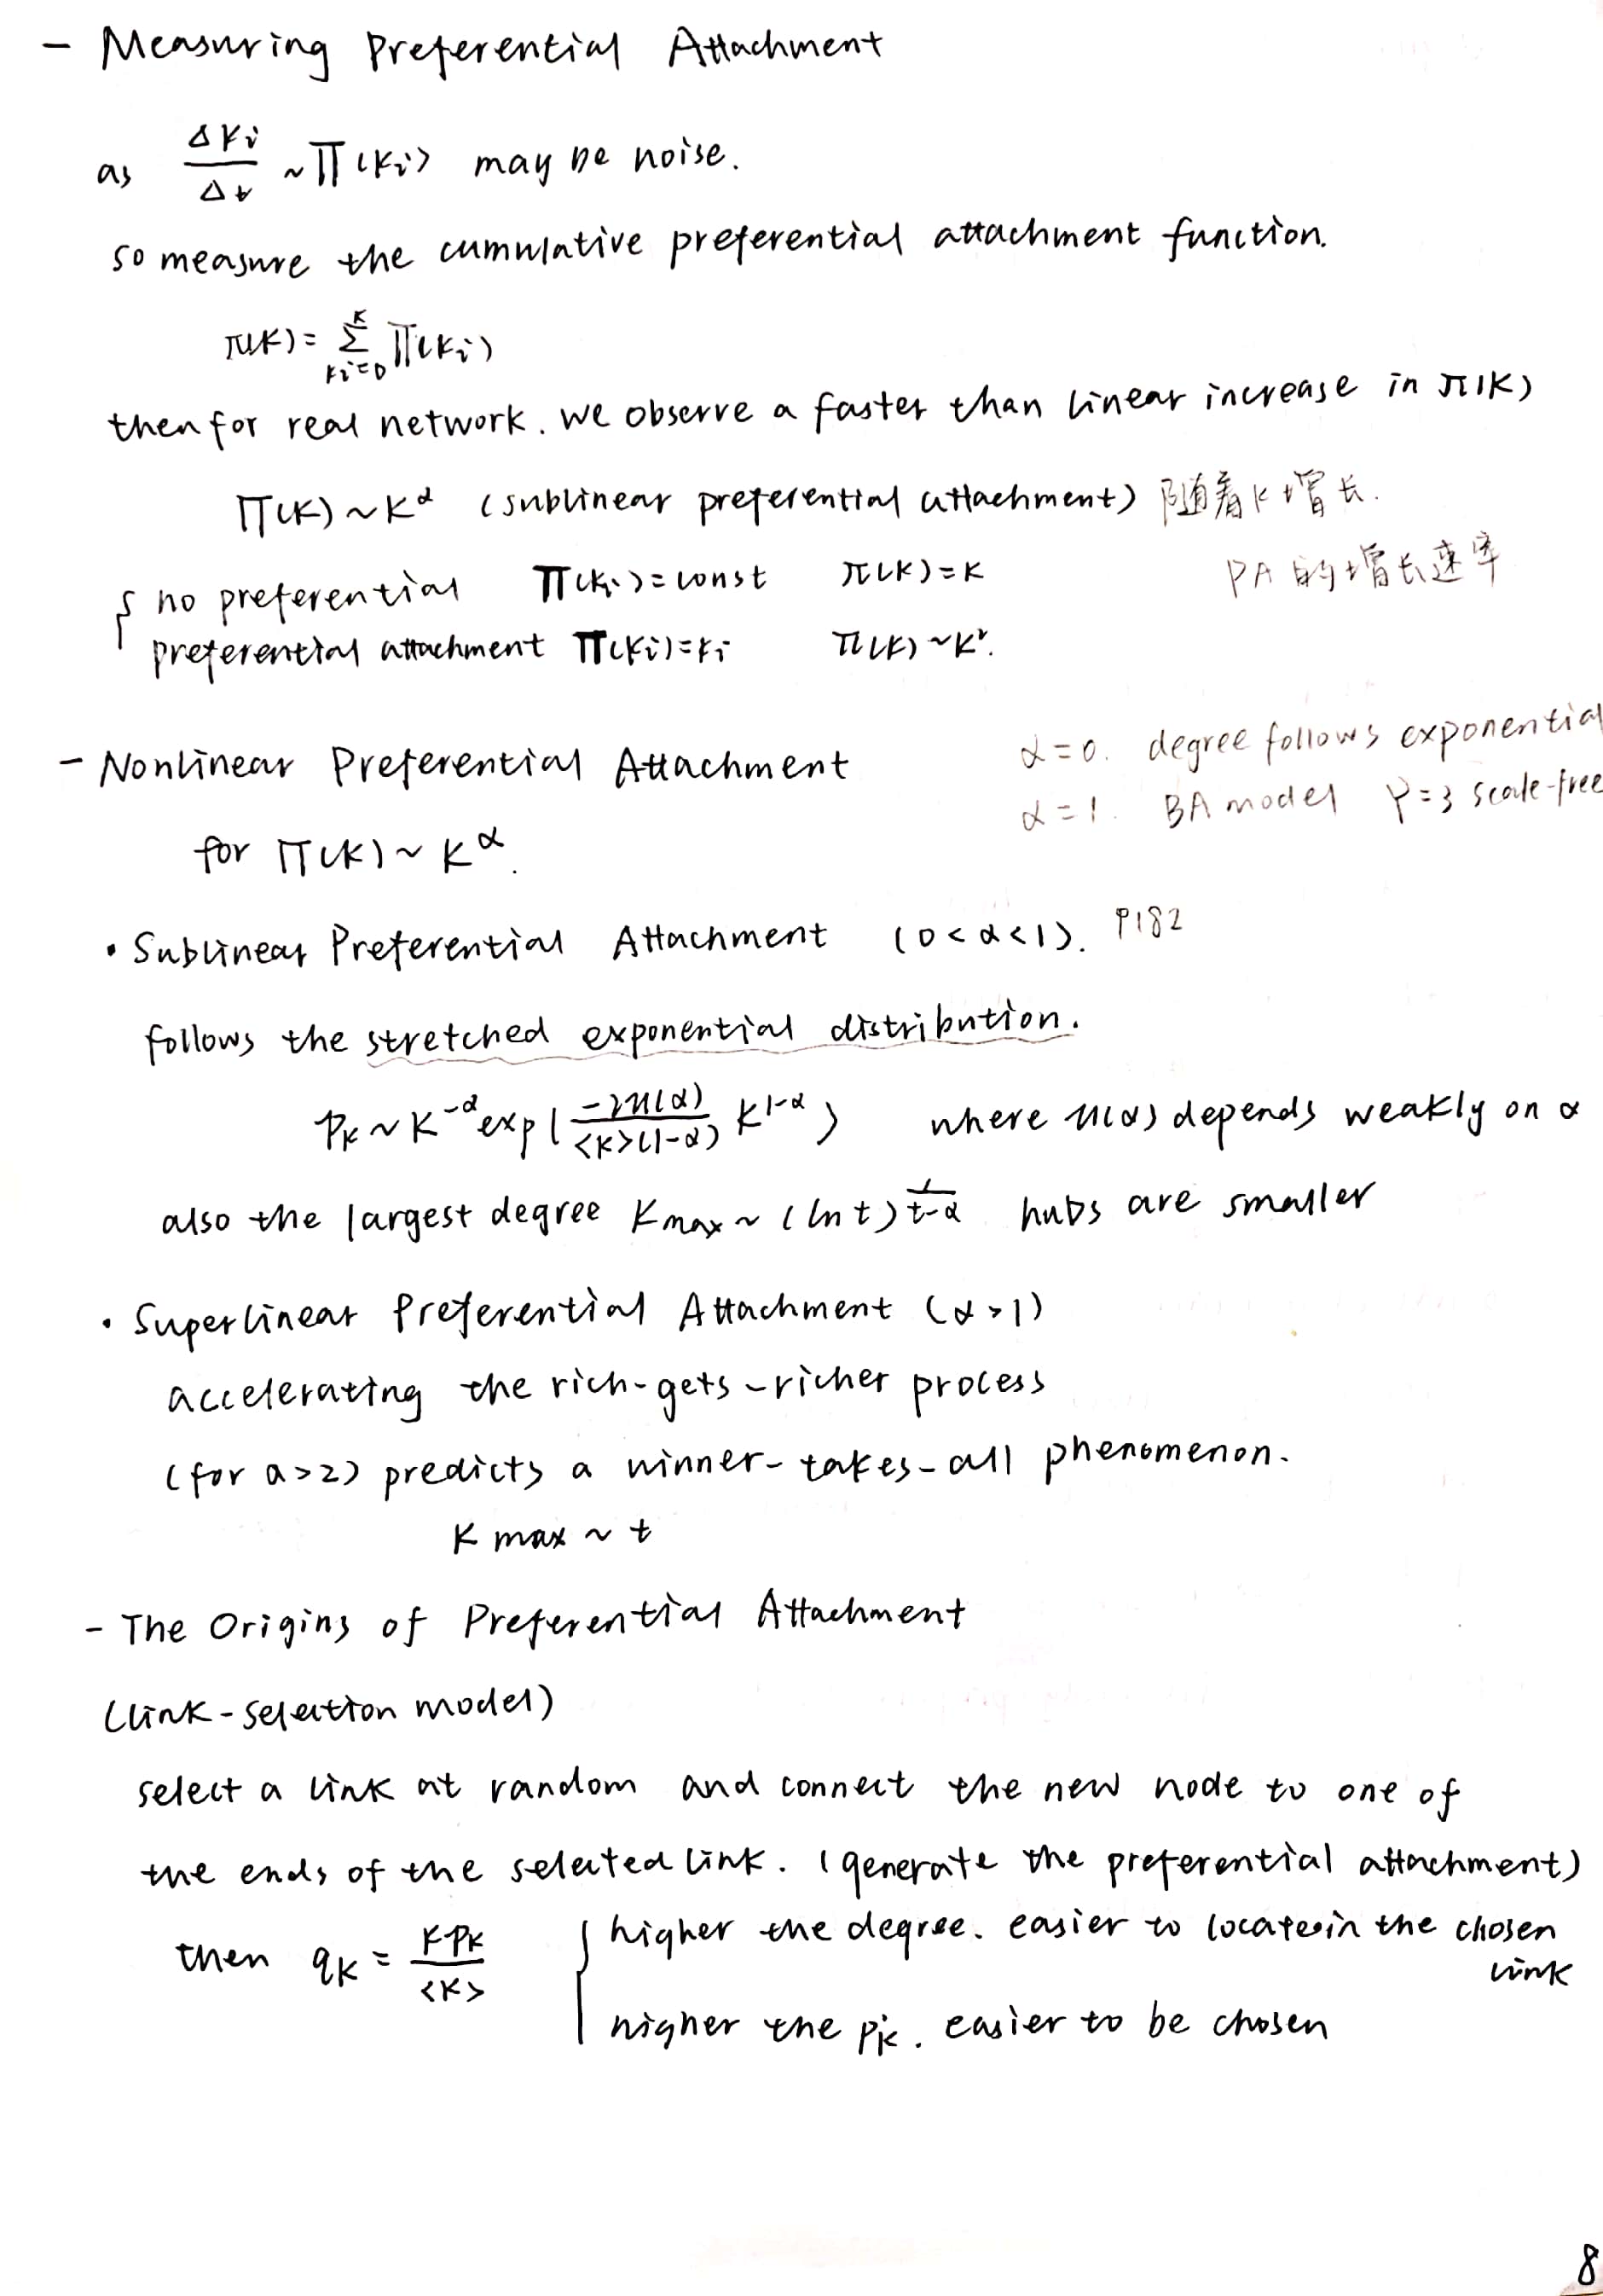 - Measuring Preferential Attachment
as ΔKi/Δt ~ Π(Ki) may be noise.
so measure the cumulative preferential attachment function.
π(K) = Σ_{Ki=0}^{K} Π(Ki)
then for real network. we observe a faster than linear increase in π(K)
Π(K) ~ K^α (sublinear preferential attachment) 随着K增长.
PA的增长速率
{ no preferential Π(Ki) = const π(K) = K
preferential attachment Π(Ki) = Ki π(K) ~ K².
- Nonlinear Preferential Attachment
α = 0. degree follows exponential
α = 1. BA model γ = 3 scale-free
for Π(K) ~ K^α.
• Sublinear Preferential Attachment (0 < α < 1). P182
follows the stretched exponential distribution.
P_K ~ K^{-α} exp( -2μ(α) / <K>(1-α) K^{1-α} ) where μ(α) depends weakly on α
also the largest degree K max ~ (ln t)^{1/(1-α)} hubs are smaller
• Superlinear Preferential Attachment (α > 1)
accelerating the rich-gets-richer process
(for a > 2) predicts a winner-takes-all phenomenon.
K max ~ t
- The Origins of Preferential Attachment
(link-selection model)
select a link at random and connect the new node to one of
the ends of the selected link. (generate the preferential attachment)
then q_K = K P_K / <K> { higher the degree. easier to locate in the chosen
link
higher the P_K. easier to be chosen
8